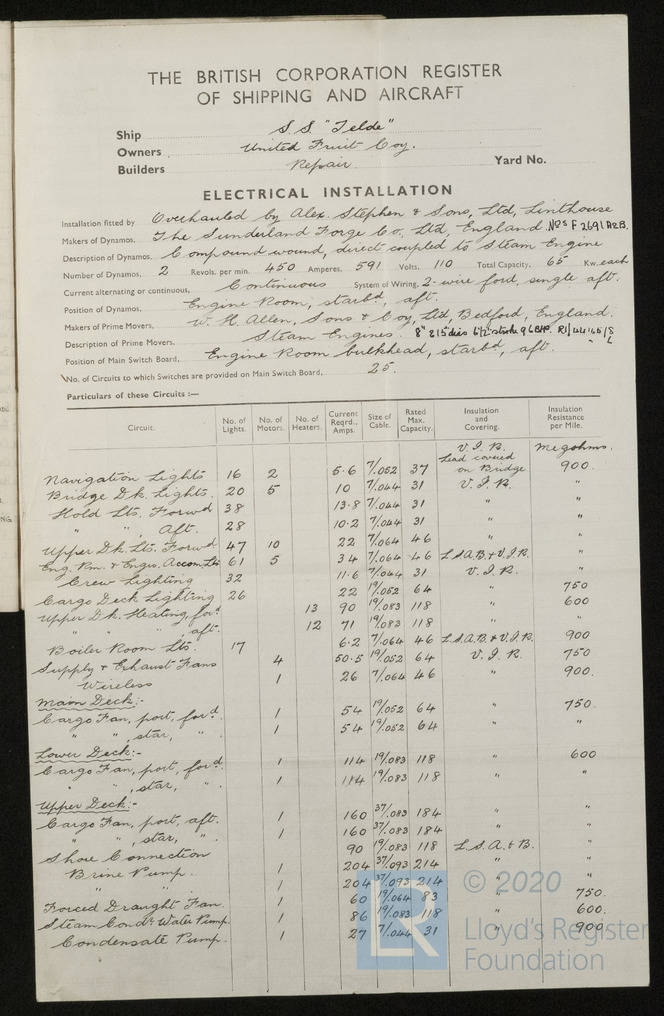 THE BRITISH CORPORATION REGISTER
OF SHIPPING AND AIRCRAFT
Ship S.S. "Telde"
Owners United Fruit Coy.
Builders Repair. Yard No.
ELECTRICAL INSTALLATION
Installation fitted by Overhauled by Alex. Stephen & Sons, Ltd, Linthouse
Makers of Dynamos. The Sunderland Forge Co. Ltd, England Nos F 2691 A&B.
Description of Dynamos. Compound wound, direct coupled to Steam Engine
Number of Dynamos. 2 Revols. per min. 450 Amperes. 591 Volts. 110 Total Capacity. 65 Kw. each
Current alternating or continuous, Continuous System of Wiring. 2-wire ford, single aft.
Position of Dynamos, Engine Room, starbd, aft.
Makers of Prime Movers, W. H. Allen, Sons & Coy, Ltd, Bedford, England.
Description of Prime Movers, Steam Engines. 8" & 15" dia 6½" stroke 96 BHP.
Position of Main Switch Board, Engine Room bulkhead, starbd, aft.
No. of Circuits to which Switches are provided on Main Switch Board, 25.
Particulars of these Circuits :—
Circuit. No. of Lights. No. of Motors. No. of Heaters. Current Reqrd., Amps. Size of Cable. Rated Max. Capacity. Insulation and Covering. Insulation Resistance per Mile.
V.I.R. Megohms.
Lead covered
Navigation Lights 16 2 5·6 7/.052 37 on Bridge 900.
Bridge Dk. Lights. 20 5 10 7/.044 31 V.I.R. "
Hold Lts. Forwd 38 13·8 7/.044 31 " "
" " Aft. 28 10·2 7/.044 31 " "
Upper Dk. Lts. Forwd 47 10 22 7/.064 46 " "
Eng. Rm. & Engrs. Accom. Lts 61 5 34 7/.064 46 L.S.A.B. & V.I.R. "
Crew Lighting 32 11·6 7/.044 31 V.I.R. "
Cargo Deck Lighting 26 22 19/.052 64 " 750
Upper Dk. Heating, ford 13 90 19/.083 118 " 600
" " " aft. 12 71 19/.083 118 " "
Boiler Room Lts. 17 6·2 7/.064 46 L.S.A.B. & V.I.R. 900
Supply & Exhaust Fans 4 50·5 19/.052 64 V.I.R. 750
Wireless 1 26 7/.064 46 " 900.
Main Deck:-
Cargo Fan, port, ford. 1 54 19/.052 64 " 750.
" " , star, " . 1 54 19/.052 64 " "
Lower Deck:-
Cargo Fan, port, ford. 1 114 19/.083 118 " 600
" " , star, " . 1 114 19/.083 118 " "
Upper Deck:-
Cargo Fan, port, aft. 1 160 37/.083 184 " "
" " , star, " . 1 160 37/.083 184 " "
Shore Connection 90 19/.083 118 L.S.A. & B. "
Brine Pump. 1 204 37/.093 214 " "
" " 1 204 37/.093 214 " "
Forced Draught Fan 1 60 19/.064 83 " 750.
Steam Condr. Water Pump. 1 86 19/.083 118 " 600.
Condensate Pump. 1 27 7/.044 31 " 900
© 2020
Lloyd's Register
Foundation